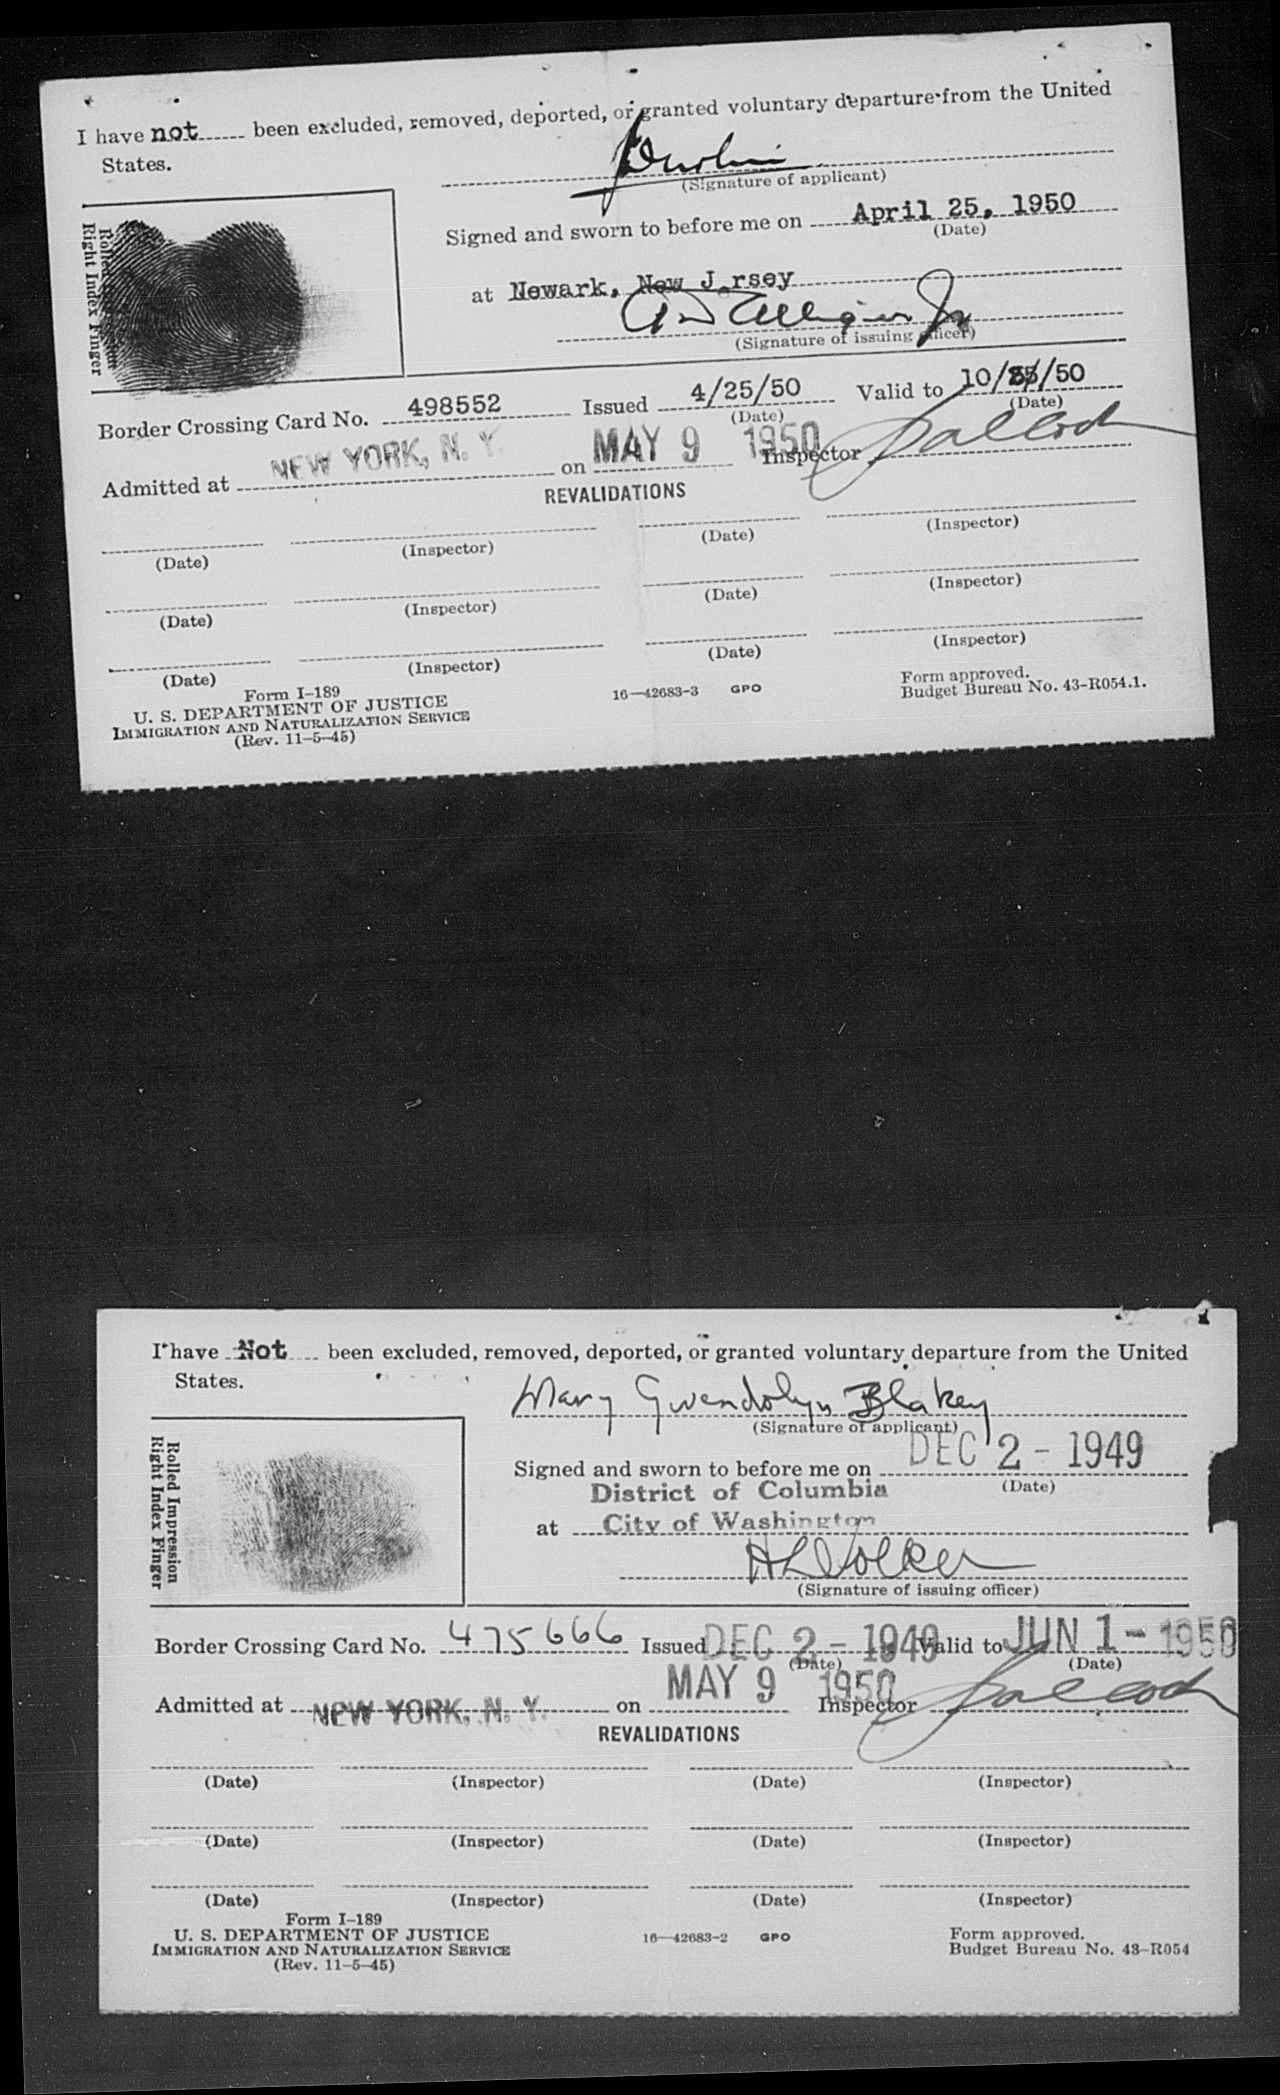 I have not been excluded, removed, deported, or granted voluntary departure from the United
States.
(Signature of applicant)
Signed and sworn to before me on April 25, 1950
(Date)
at Newark, New J rsey
(Signature of issuing officer)
Rolled Impression
Right Index Finger
Border Crossing Card No. 498552 Issued 4/25/50 Valid to 10/ /50
(Date) (Date)
Admitted at NEW YORK, N. Y. on MAY 9 1950 Inspector
REVALIDATIONS
(Date) (Inspector) (Date) (Inspector)
(Date) (Inspector) (Date) (Inspector)
(Date) (Inspector) (Date) (Inspector)
Form I-189
U. S. DEPARTMENT OF JUSTICE
IMMIGRATION AND NATURALIZATION SERVICE
(Rev. 11-5-45)
16—42683-3 GPO
Form approved.
Budget Bureau No. 43-R054.1.
I have Not been excluded, removed, deported, or granted voluntary departure from the United
States.
Mary Gwendolyn Blakey
(Signature of applicant)
Signed and sworn to before me on DEC 2 - 1949
(Date)
District of Columbia
at City of Washington
(Signature of issuing officer)
Rolled Impression
Right Index Finger
Border Crossing Card No. 475666 Issued DEC 2 - 1949 Valid to JUN 1 - 1950
(Date) (Date)
Admitted at NEW YORK, N. Y. on MAY 9 1950 Inspector
REVALIDATIONS
(Date) (Inspector) (Date) (Inspector)
(Date) (Inspector) (Date) (Inspector)
(Date) (Inspector) (Date) (Inspector)
Form I-189
U. S. DEPARTMENT OF JUSTICE
IMMIGRATION AND NATURALIZATION SERVICE
(Rev. 11-5-45)
16—42683-2 GPO
Form approved.
Budget Bureau No. 43-R054